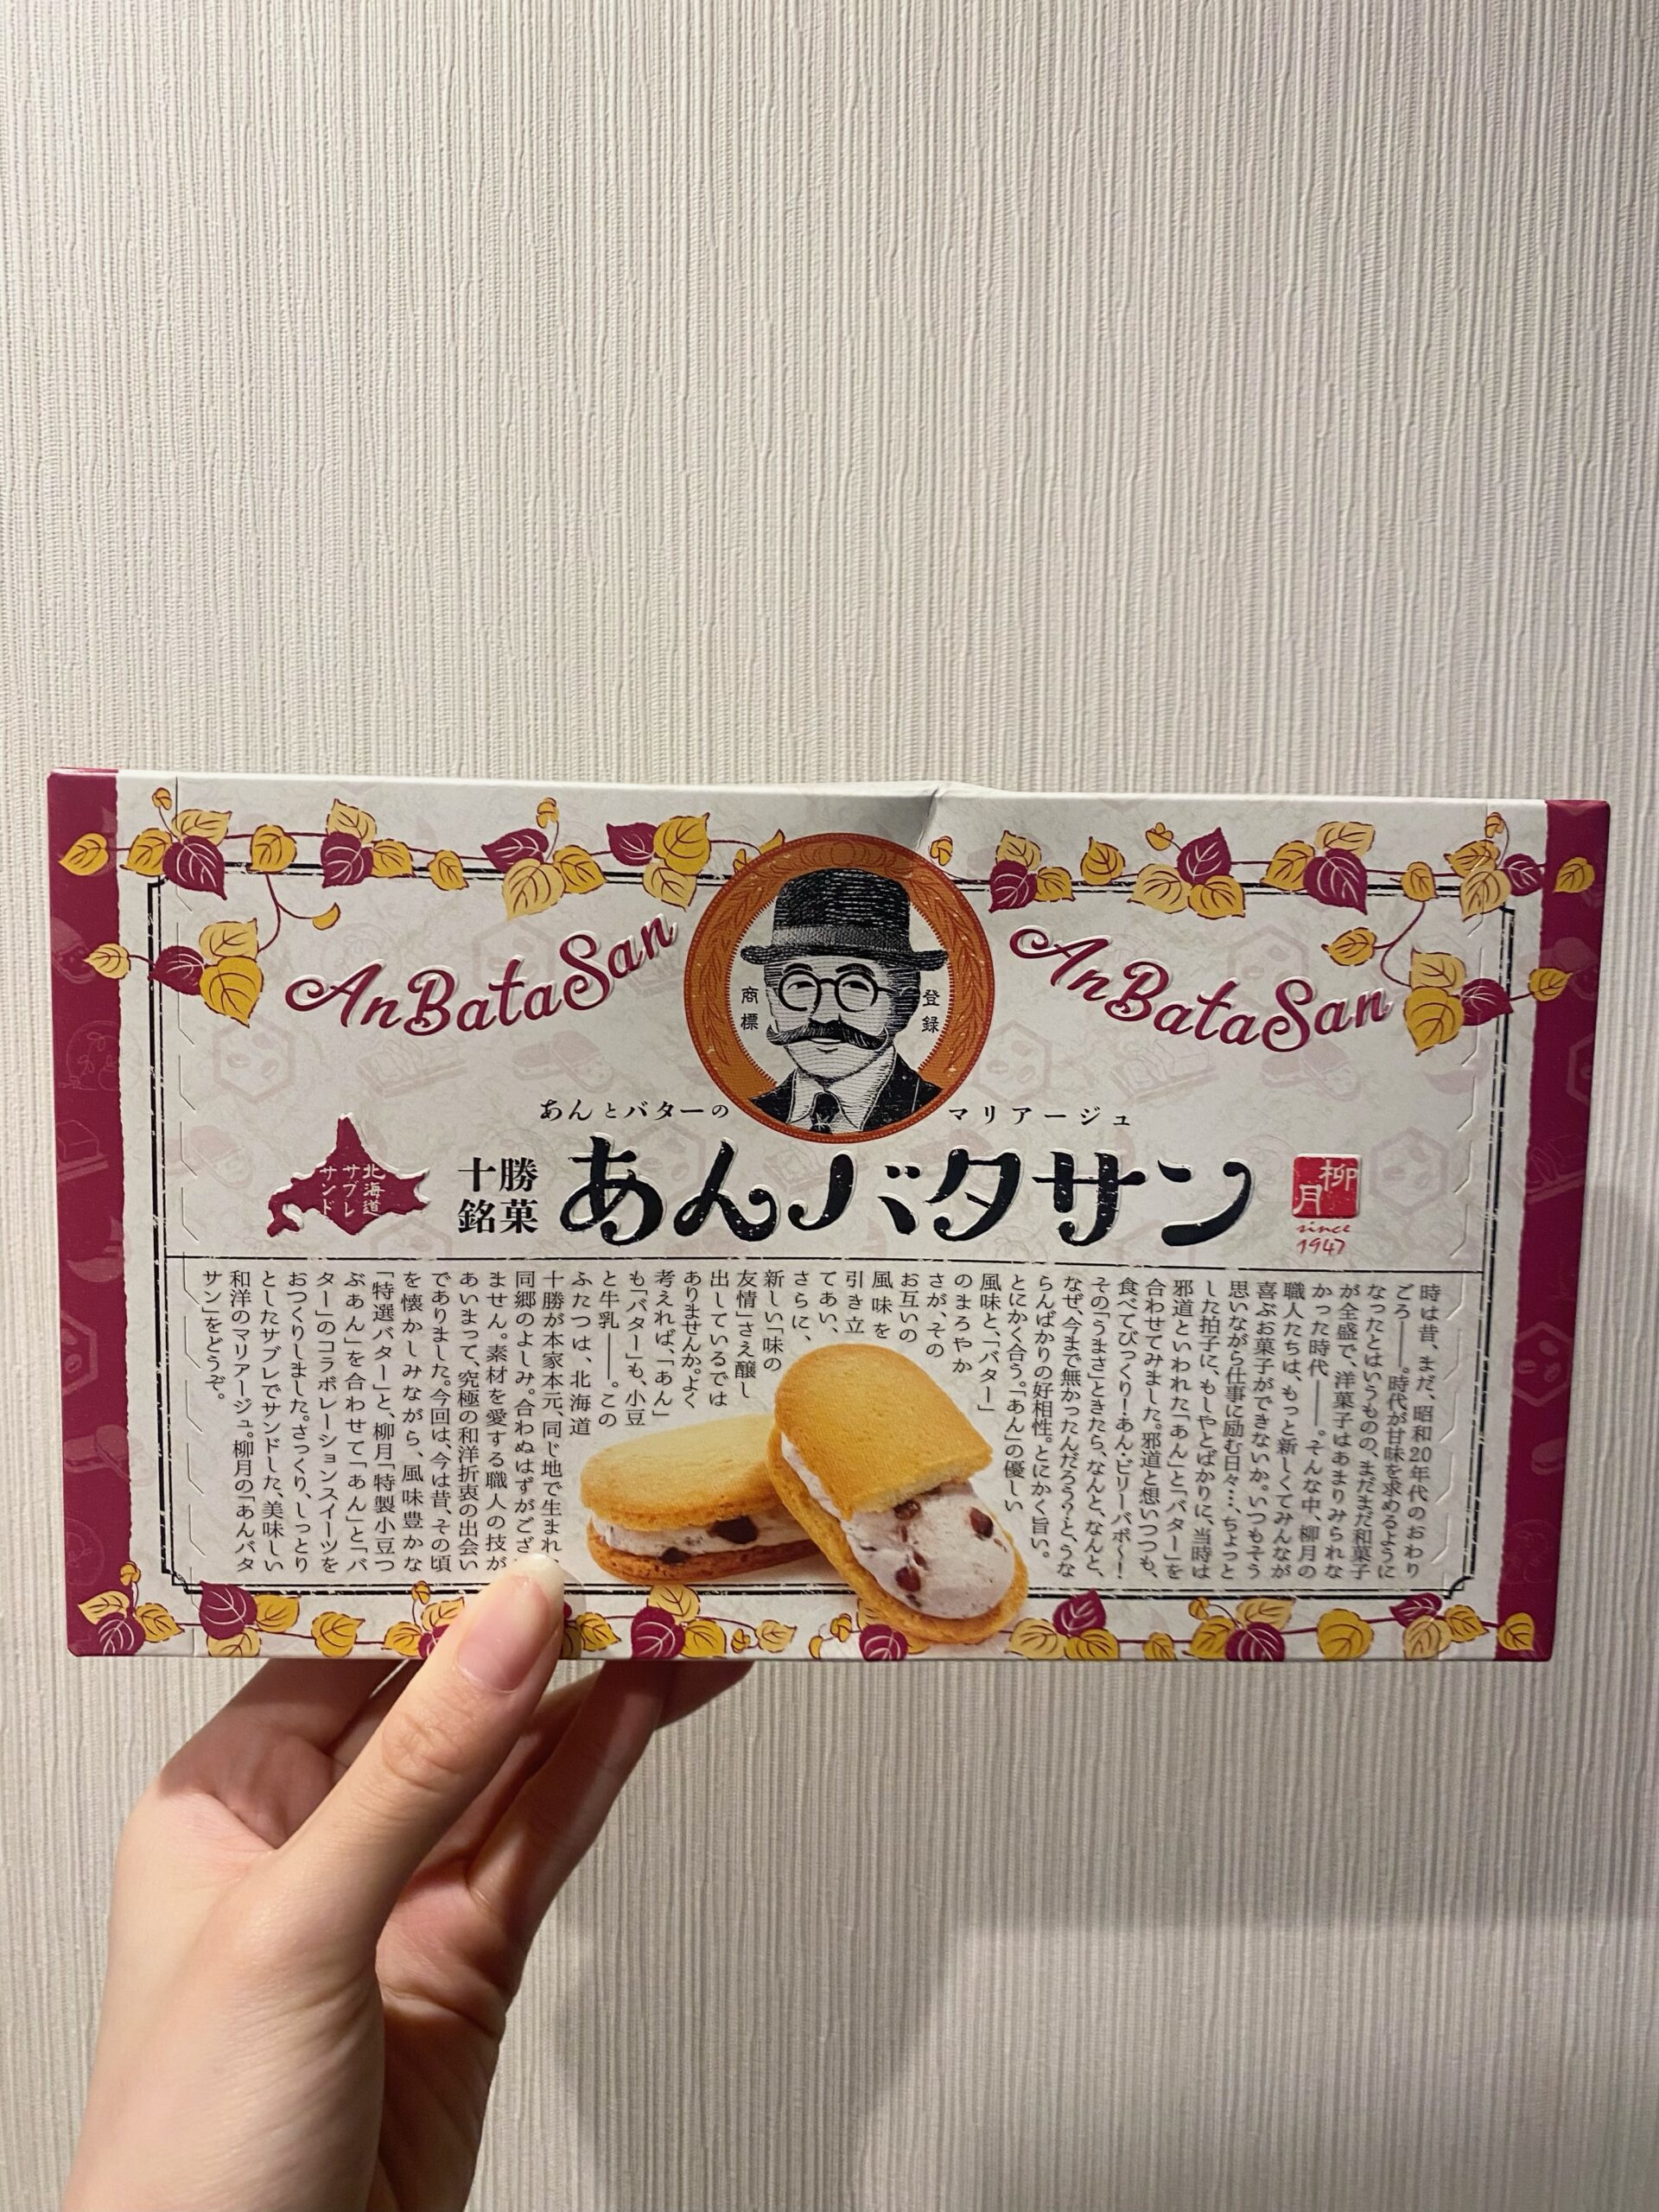 AnBataSan
AnBataSan
商標
登録
あんとバターの
マリアージュ
北海道
サブレ
サンド
十勝
銘菓
あんバタサン
柳月
since
1947
時は昔、まだ、昭和20年代のおわり
ごろ——。時代が甘味を求めるように
なったとはいうものの、まだまだ和菓子
が全盛で、洋菓子はあまりみられな
かった時代——。そんな中、柳月の
職人たちは、もっと新しくてみんなが
喜ぶお菓子ができないか。いつもそう
思いながら仕事に励む日々…、ちょっと
した拍子に、もしやとばかりに、当時は
邪道といわれた「あん」と「バター」を
合わせてみました。邪道と想いつつも、
食べてびっくり!あん・ビリーバボ〜!
その「うまさ」ときたら、なんと、なんと、
なぜ、今まで無かったんだろう?と、うな
らんばかりの好相性。とにかく旨い。
とにかく合う。「あん」の優しい
風味と、「バター」
のまろやか
さが、その
お互いの
風味を
引き立
てあい、
さらに、
新しい「味の
友情」さえ醸し
出しているでは
ありませんか。よく
考えれば、「あん」
も「バター」も、小豆
と牛乳——。この
ふたつは、北海道
十勝が本家本元、同じ地で生まれ、
同郷のよしみ。合わぬはずがござ
ません。素材を愛する職人の技が
あいまって、究極の和洋折衷の出会い
でありました。今回は、今は昔、その頃
を懐かしみながら、風味豊かな
「特選バター」と、柳月「特製小豆つ
ぶあん」を合わせて「あん」と「バ
ター」のコラボレーションスイーツを
おつくりしました。さっくり、しっとり
としたサブレでサンドした、美味しい
和洋のマリアージュ。柳月の「あんバタ
サン」をどうぞ。